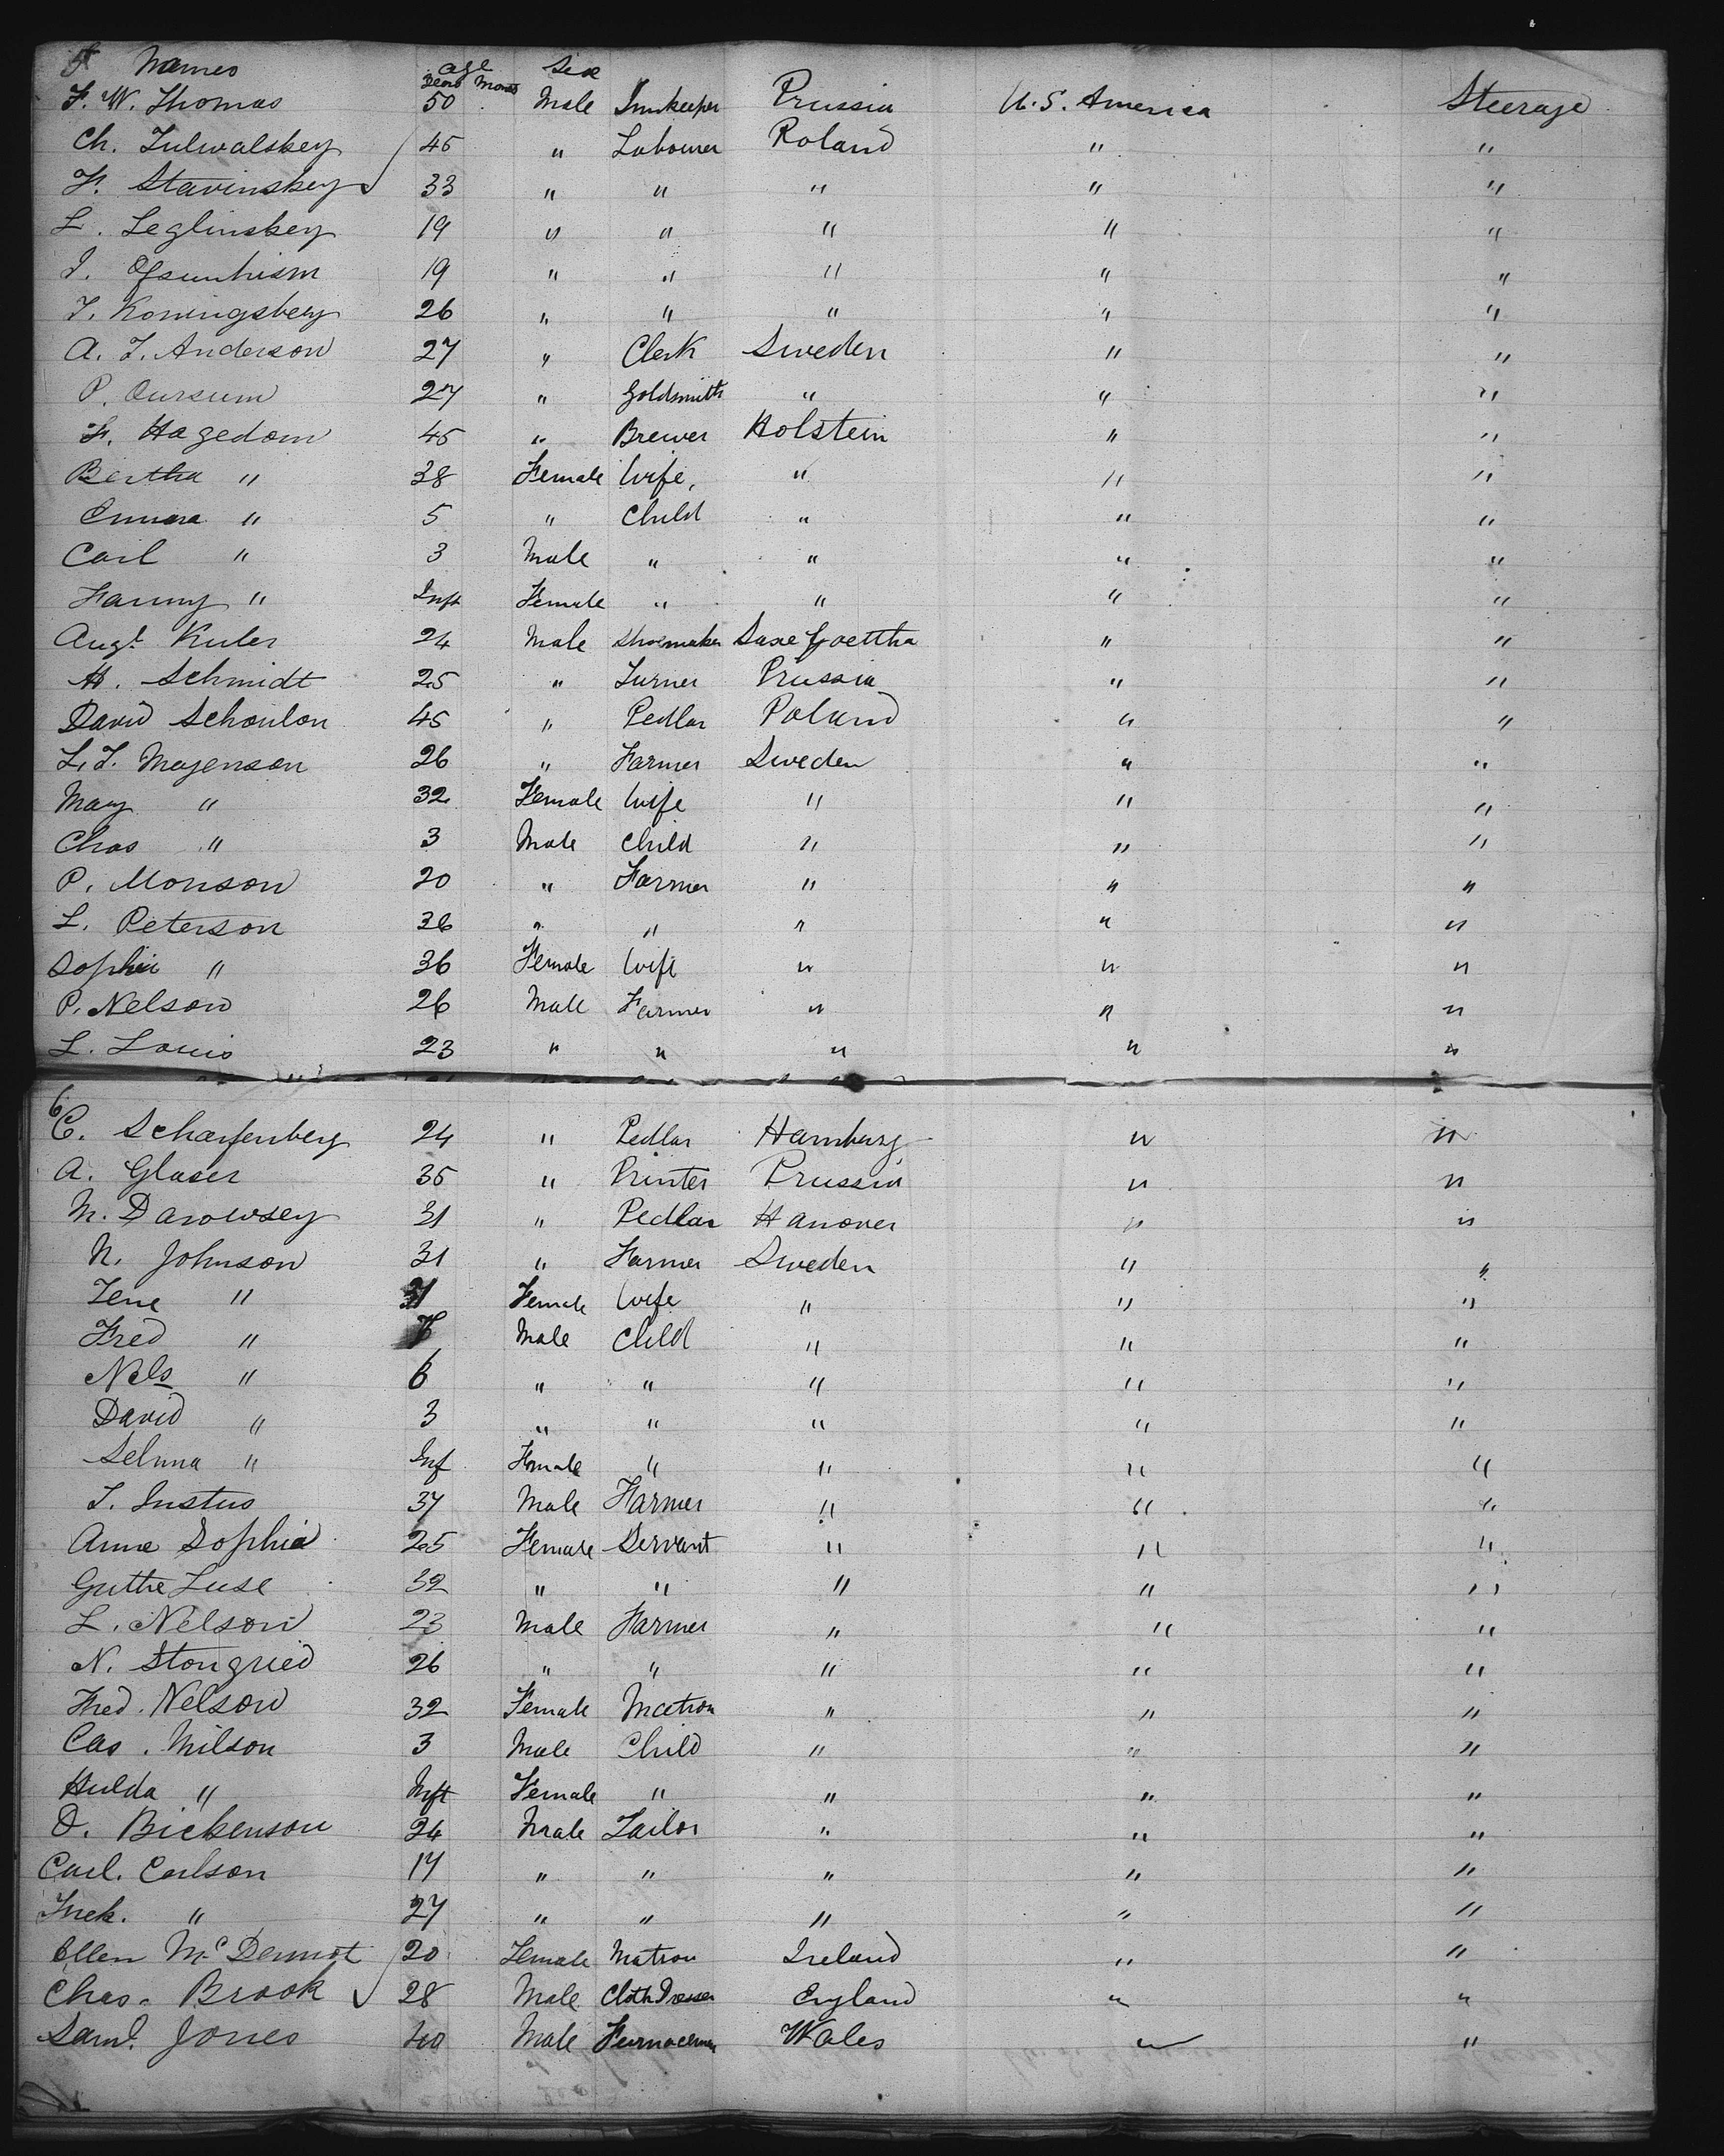 5 Names Age Years Months Sex
F. W. Thomas 50 Male Innkeeper Prussia U.S. America Steerage
Ch. Zulwalskey 45 " Labourer Poland " "
F. Stavinskey 33 " " " " "
L. Leglinskey 19 " " " " "
I. 19 " " " " "
I. Koningsberg 26 " " " " "
A. J. Anderson 27 " Clerk Sweden " "
P. Oursum 27 " Goldsmith " " "
F. Hagedorn 45 " Brewer Holstein " "
Bertha " 38 Female Wife, " " "
Emma " 5 " Child " " "
Carl " 3 Male " " " "
Fanny " Inft Female " " " "
Augt. Kuler 24 Male Shoemaker Saxe Goettha " "
H. Schmidt 25 " Turner Prussia " "
David Schoulon 45 " Pedlar Poland " "
L. J. Mogenson 26 " Farmer Sweden " "
Mary " 32 Female Wife " " "
Chas " 3 Male Child " " "
P. Monson 20 " Farmer " " "
L. Peterson 36 " " " " "
Sophia " 36 Female Wife " " "
P. Nelson 26 Male Farmer " " "
L. Louis 23 " " " " "
6
C. Scharfenberg 24 " Pedlar Hamburg " "
A. Glaser 35 " Printer Prussia " "
M. Darowsey 31 " Pedlar Hanover " "
N. Johnson 31 " Farmer Sweden " "
Lene " 31 Female Wife " " "
Fred " Male Child " " "
Nels " 6 " " " " "
David " 3 " " " " "
Selma " Inf Female " " " "
J. Justus 37 Male Farmer " " "
Anna Sophia 25 Female Servant " " "
Guthe Luse 32 " " " " "
L. Nelson 23 Male Farmer " " "
N. Stongried 26 " " " " "
Fred. Nelson 32 Female Matron " " "
Cas. Nilson 3 Male Child " " "
Hulda " Inft Female " " " "
O. Bickenson 24 Male Tailor " " "
Carl. Carlson 17 " " " " "
Frek. " 27 " " " " "
Ellen McDermot 20 Female Matron Ireland " "
Chas. Brook 28 Male Cloth Dresser England " "
Saml. Jones 40 Male Furnaceman Wales " "